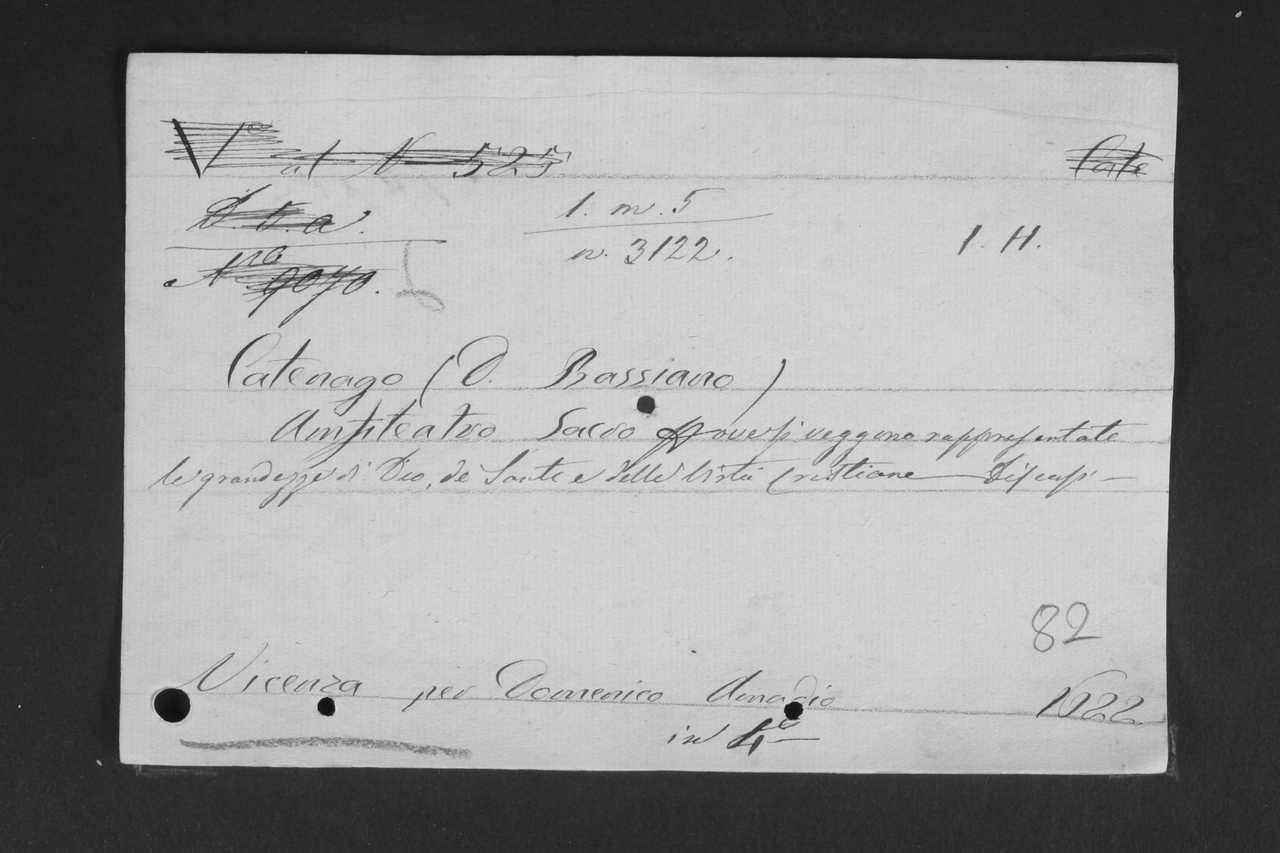 V at N 525
Cate
D. V. a.
1. m. 5
n. 3122.
1. H.
Nro 9070.
Catenago (D. Bassiano)
Amfiteatro Sacro ove si veggono rappresentate
le grandezze di Dio, de Santi e delle Virtù Cristiane
82
Vicenza per Domenico Amadio 1622
in 4º